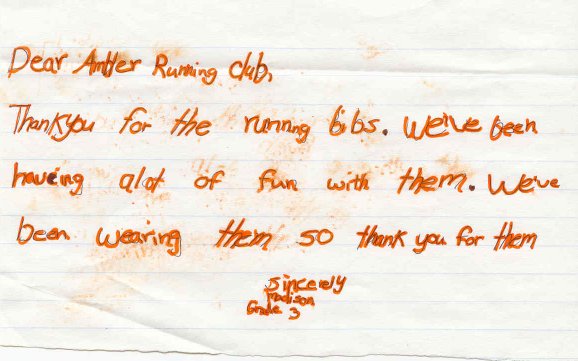 Dear Ambler Running club,
Thankyou for the running bibs. We've been
haveing alot of fun with them. We've
been wearing them so thank you for them
sincerely
madison
Grade 3